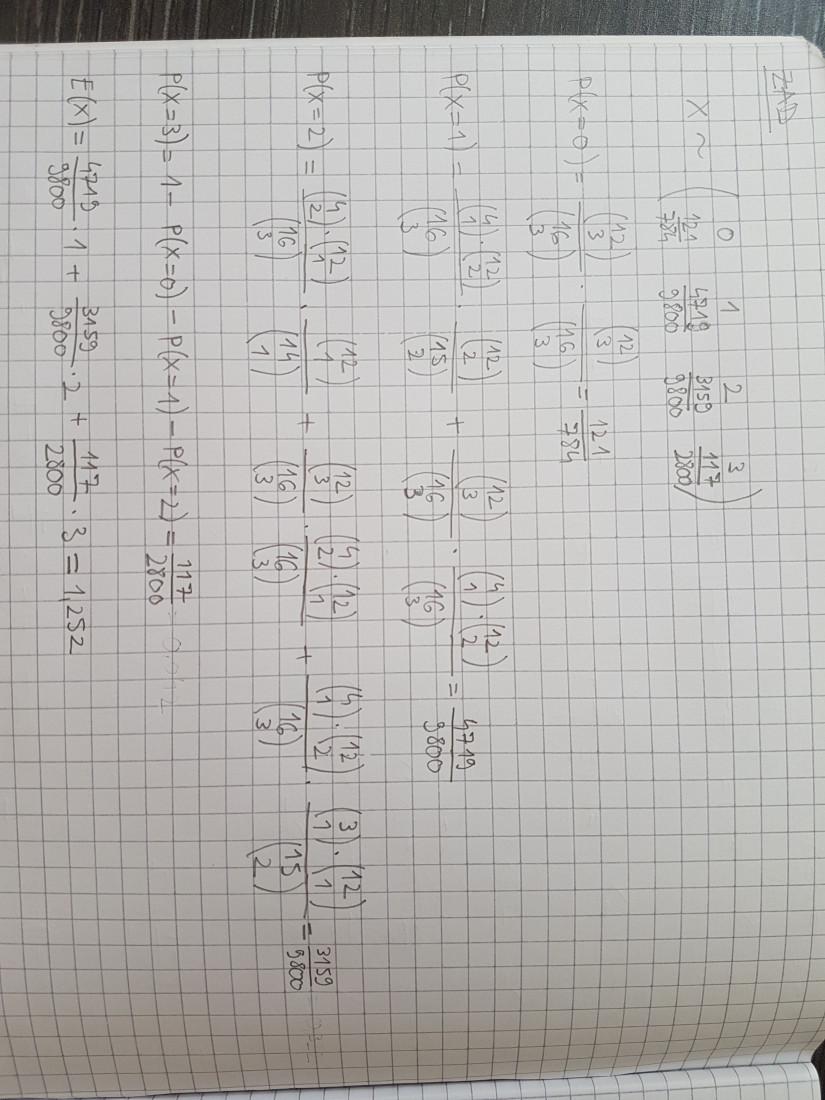 ZAD
X ~ ( 0 1 2 3
121/784 4719/9800 3159/9800 117/2800 )
P(X=0) = (12 3)/(16 3) · (12 3)/(16 3) = 121/784
P(X=1) = (4 1)·(12 2)/(16 3) · (12 2)/(15 2) + (12 3)/(16 3) · (4 1)·(12 2)/(16 3) = 4719/9800
P(X=2) = (4 2)·(12 1)/(16 3) · (12 1)/(14 1) + (12 3)/(16 3) · (4 2)·(12 1)/(16 3) + (4 1)·(12 2)/(16 3) · (3 1)·(12 1)/(15 2) = 3159/9800
P(X=3) = 1 - P(X=0) - P(X=1) - P(X=2) = 117/2800
E(X) = 4719/9800 · 1 + 3159/9800 · 2 + 117/2800 · 3 = 1,252